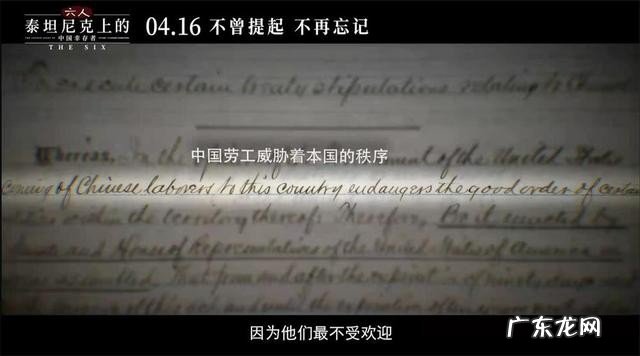 六人
泰坦尼克上的
中国幸存者
THE SIX
04.16 不曾提起 不再忘记
To execute certain treaty stipulations relating to Chinese
Whereas, In the of the United States
中国劳工威胁着本国的秩序
coming of Chinese laborers to this country endangers the good order of certain
localities within the territory thereof: Therefore, Be it enacted by
Senate and House of Representatives of the United States of America in
assembled, That from and after the expiration of ninety days
of this act, and until the expiration of
因为他们最不受欢迎
广东龙网